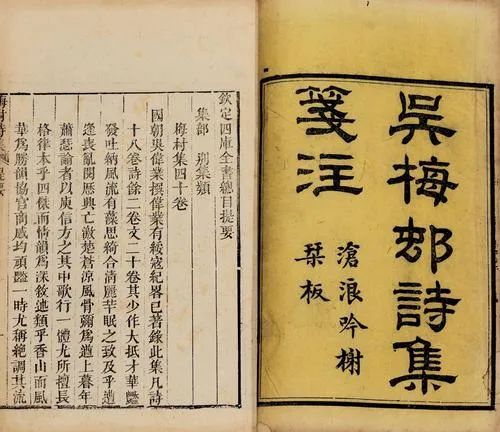 吳梅邨詩集
箋注
滄浪吟榭
栞板
欽定四庫全書總目提要
集部 別集類
梅村集四十卷
國朝吳偉業撰偉業有綏寇紀畧已著錄此集凡詩
十八卷詩餘二卷文二十卷其少作大抵才華豔
發吐納風流有藻思綺合清麗芊眠之致及乎遭
逢喪亂閱歷興亡激楚蒼涼風骨彌爲遒上暮年
蕭瑟論者以庾信方之其中歌行一體尤所擅長
格律本乎四傑而情韻爲深敘述類乎香山而風
華爲勝韻協宮商感均頑豔一時尤稱絕調其流